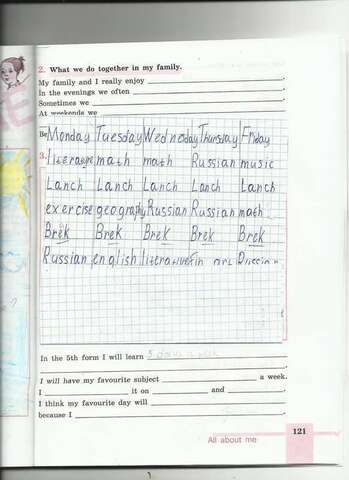 2. What we do together in my family.
My family and I really enjoy
In the evenings we often
Sometimes we
At weekends we
Be
Monday Tuesday Wednesday Thursday Friday
3.
math math Russian music
Lanch Lanch Lanch Lanch Lanch
exercise geography Russian Russian math
Brek Brek Brek Brek Brek
Russian english
In the 5th form I will learn
I will have my favourite subject a week.
I it on and
I think my favourite day will
because I
121
All about me